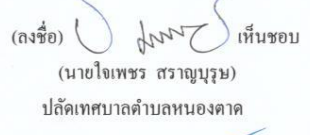 (ลงชื่อ) เห็นชอบ
(นายใจเพชร สราญบุรุษ)
ปลัดเทศบาลตำบลหนองตาด